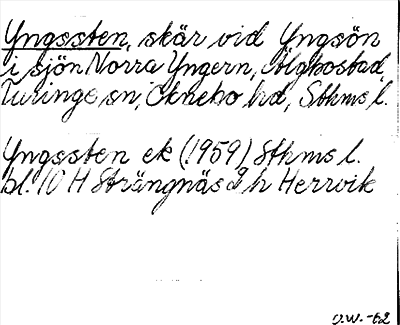 Yngssten, skär vid Yngsön
i sjön Norra Yngern, Älgbostad,
Turinge sn, Öknebo hd, Sthms l.
Yngssten ek (1959) Sthms l.
bl. 10 H Strängnäs 2 h Herrvik
O.W. -62